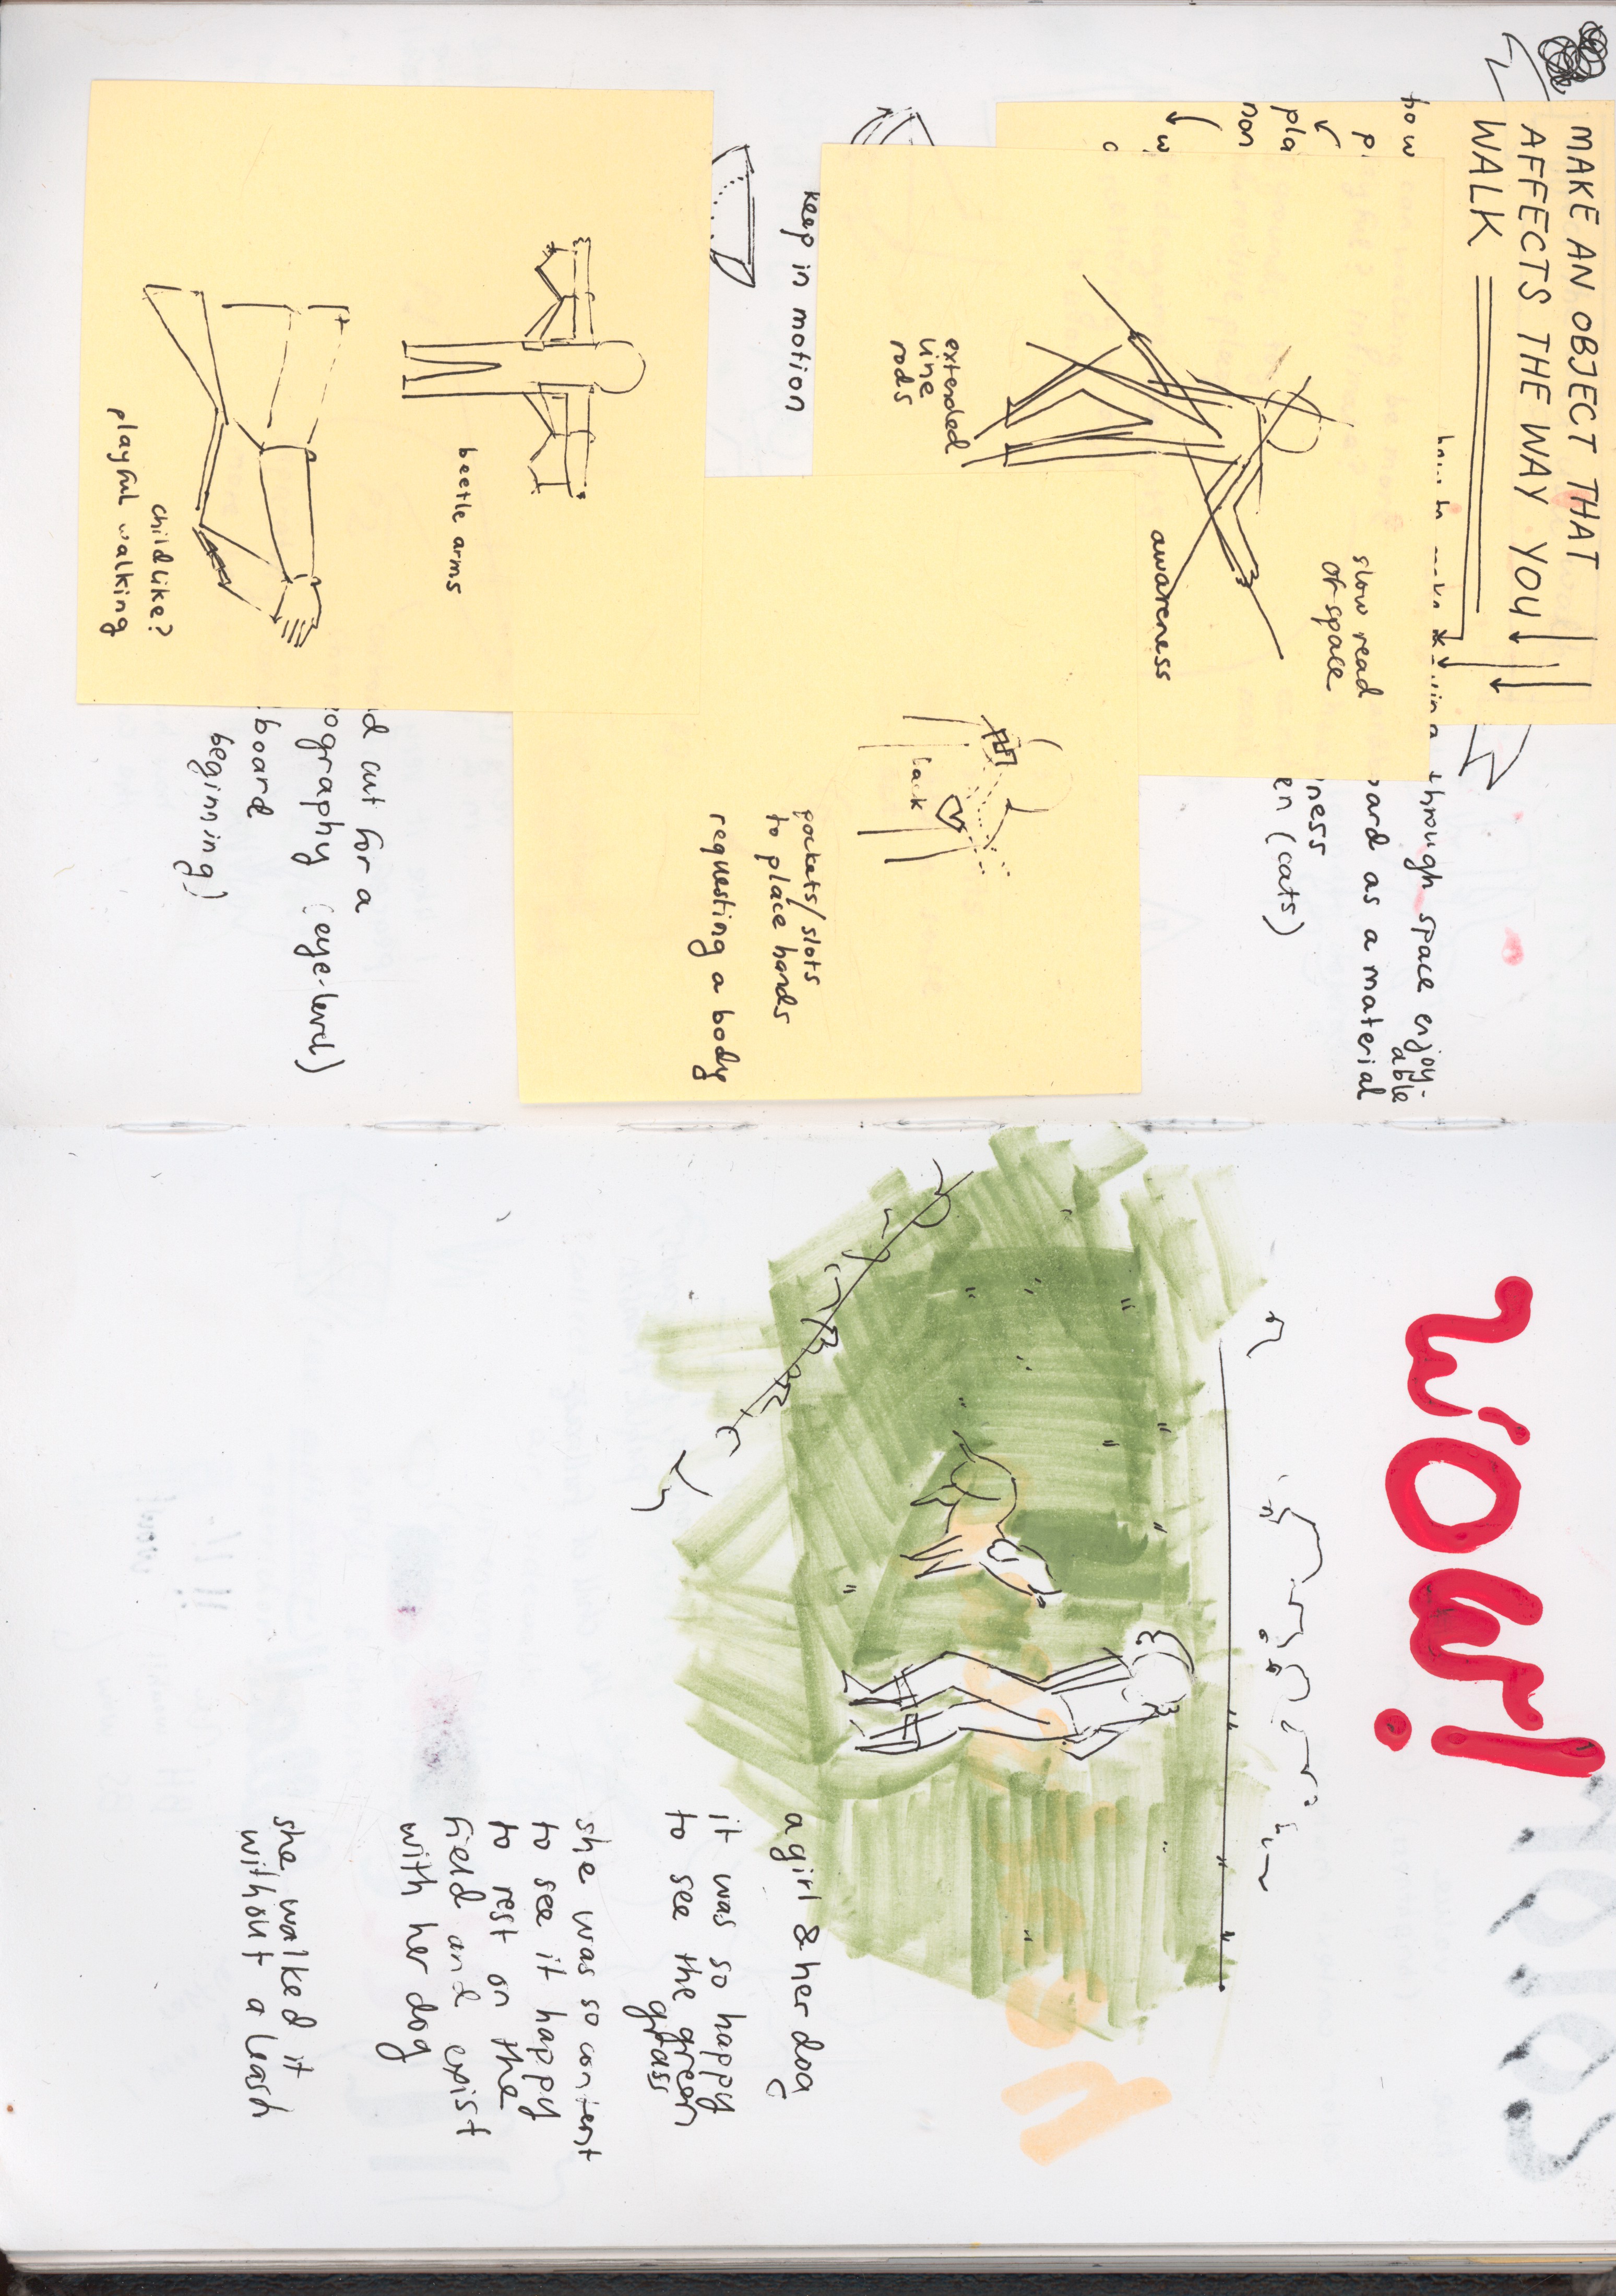 MAKE AN OBJECT THAT
AFFECTS THE WAY YOU
WALK
how
through space enjoy-
able
as a material
(cats)
slow read
of space
awareness
extended
line
rods
keep in motion
lack
pockets/slots
to place hands
requesting a body
beetle arms
childlike?
playful walking
cut for a
(eye-level)
board
beginning)
wow!
a girl & her dog
it was so happy
to see the green
grass
she was so content
to see it happy
to rest on the
field and exist
with her dog
she walked it
without a leash